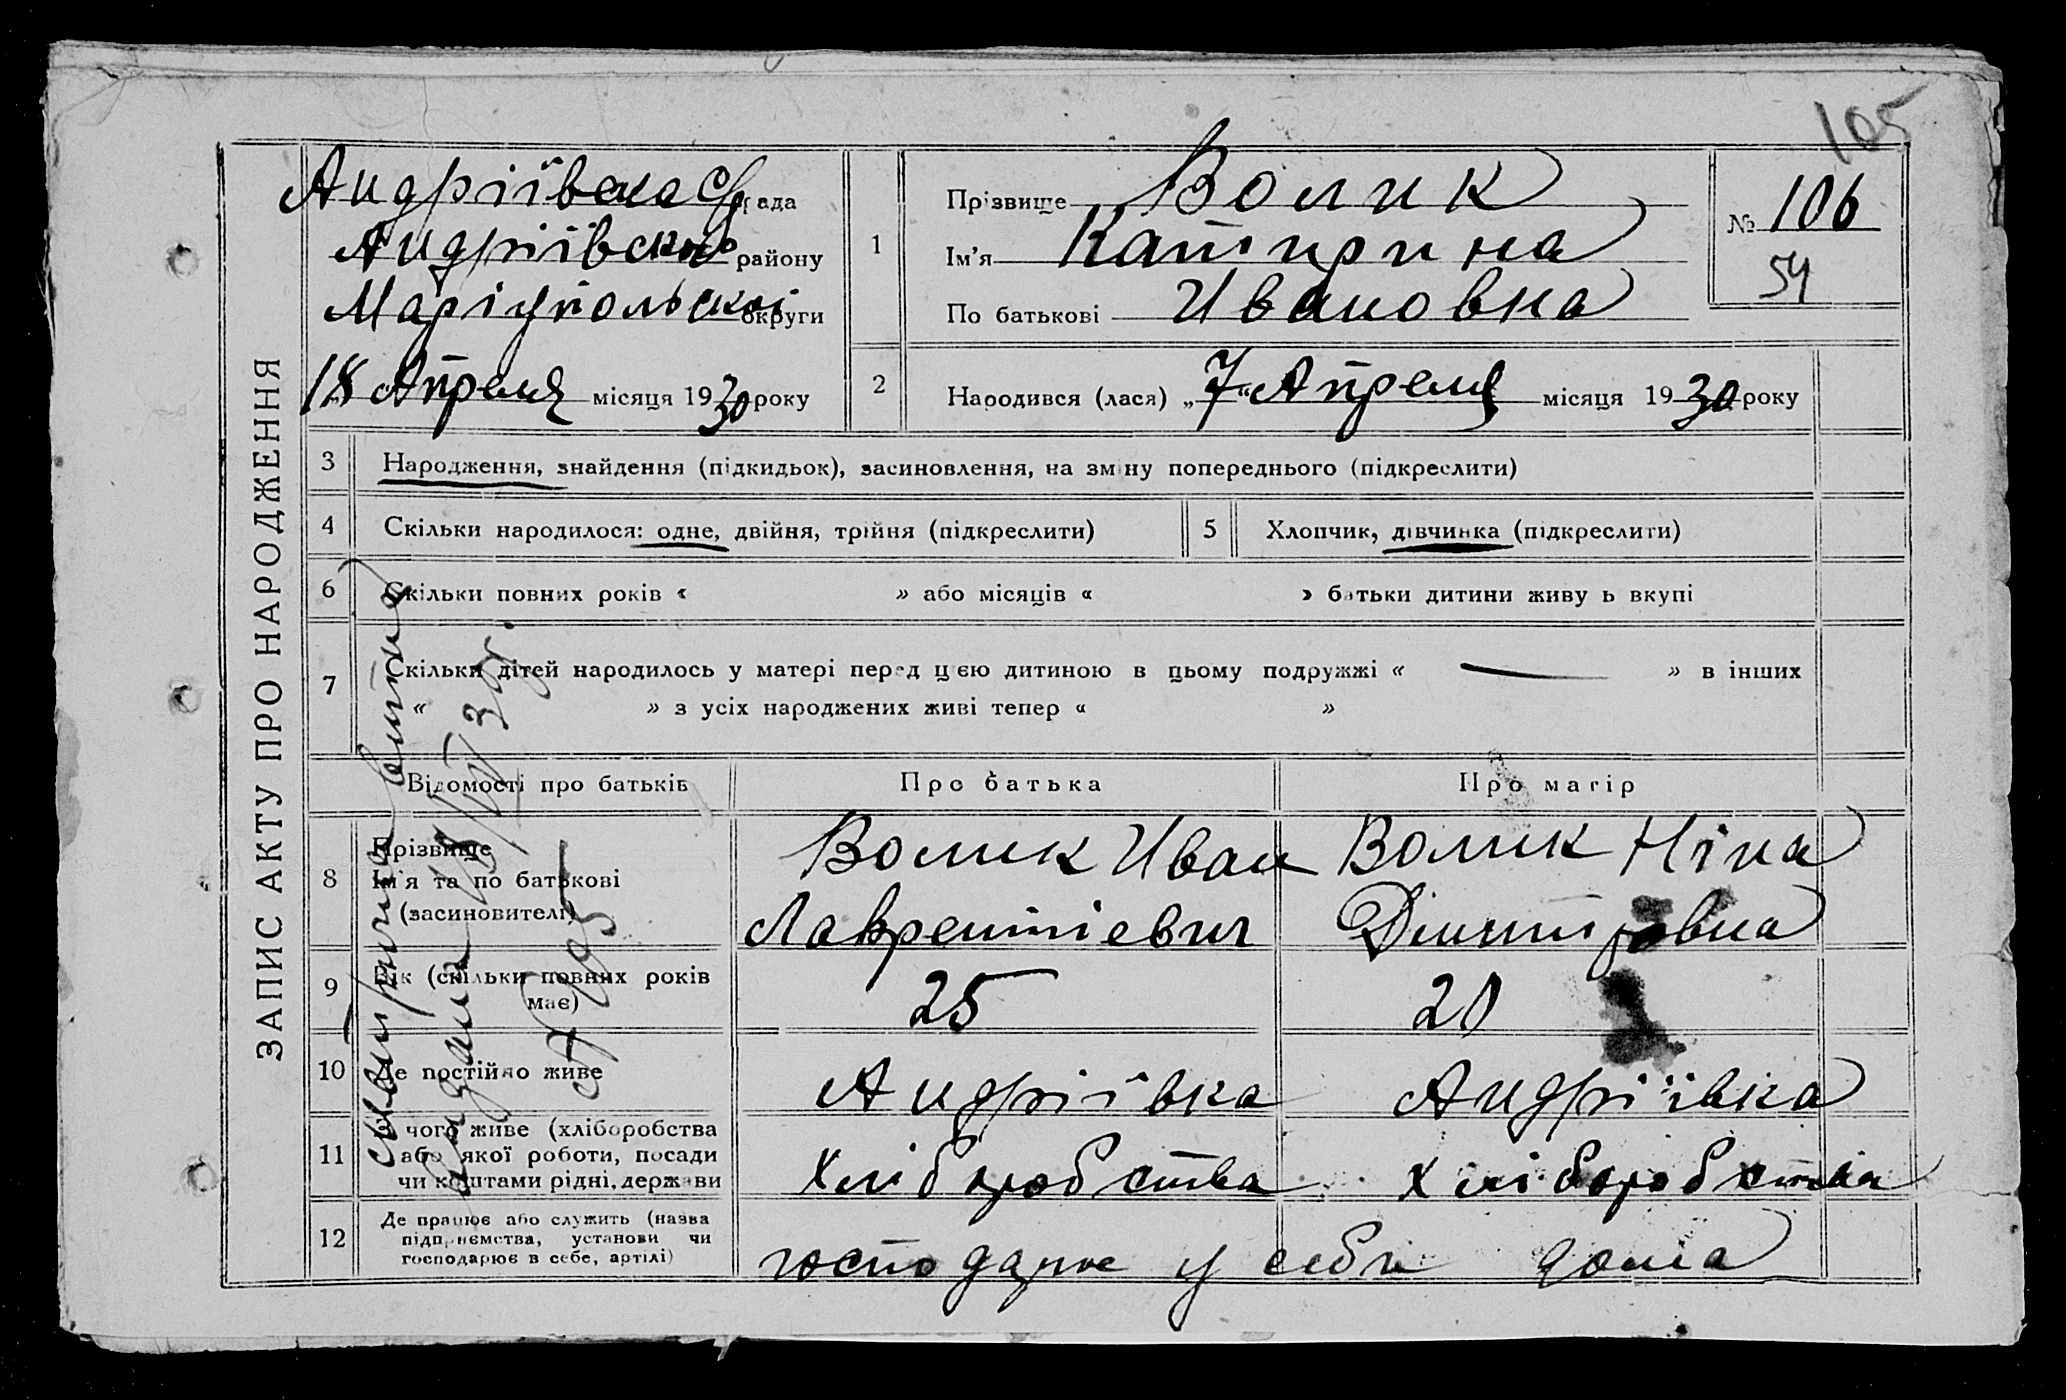 105
ЗАПИС АКТУ ПРО НАРОДЖЕННЯ
Андріївска С/рада
Андріївског району
Маріупольскої округи
18 Апреля місяця 1930 року
1
Прізвище Волик
Ім'я Катирина
По батькові Ивановна
№ 106
54
2
Народився (лася) „7“ Апреля місяця 1930 року
3 Народження, знайдення (підкидьок), засиновлення, на зміну попереднього (підкреслити)
4 Скільки народилося: одне, двійня, трійня (підкреслити)
5 Хлопчик, дівчинка (підкреслити)
6 Скільки повних років « » або місяців « » батьки дитини живуть вкупі
7 Скільки дітей народилось у матері перед цією дитиною в цьому подружжі « — » в інших
« » з усіх народжених живі тепер « »
Відомості про батьків
Про батька
Про матір
8 Прізвище
Ім'я та по батькові
(засиновителі)
Волик Иван
Лаврентіевич
Волик Ніна
Дімитровна
9 Вік (скільки повних років
має)
25
20
10 Де постійно живе
Андріївка
Андріївка
11 З чого живе (хліборобства
або якої роботи, посади
чи коштами рідні, держави
Хліборобства
Хліборобства
12 Де працює або служить (назва
підприємства, установи чи
господарює в себе, артілі)
господарює у себе дома
выдана 18/IV 30г.